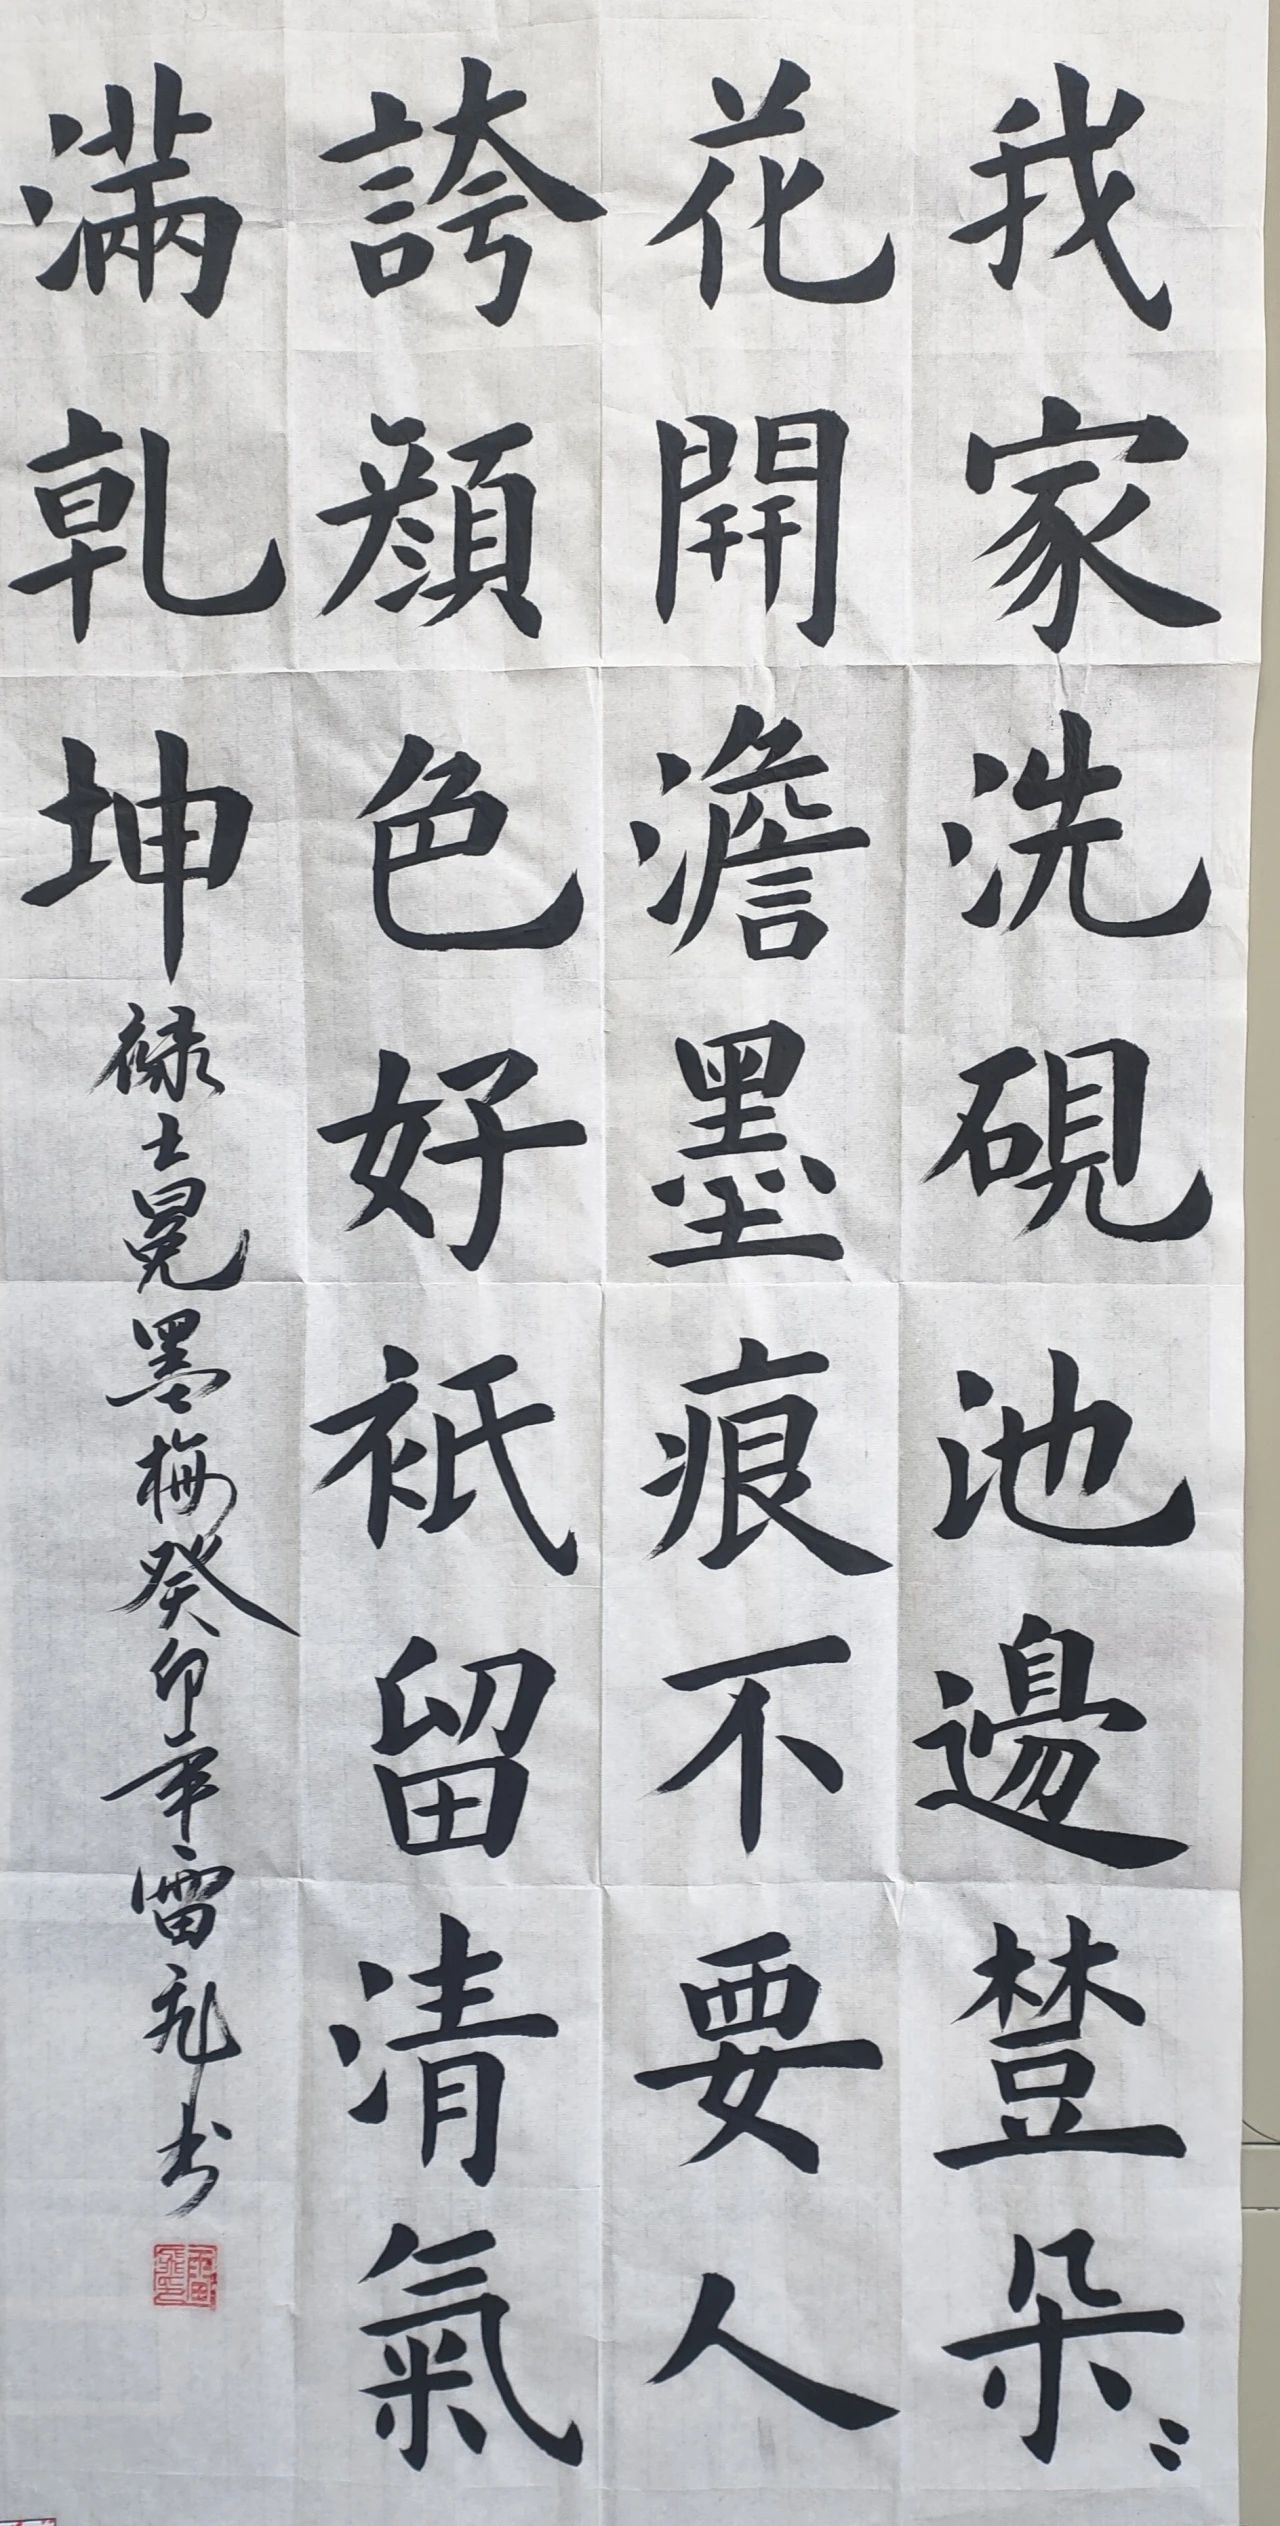 我家洗硯池邊樹朵〻
花開澹墨痕不要人
誇顔色好衹留清氣
滿乾坤
禄王冕墨梅癸卯年雷飛书